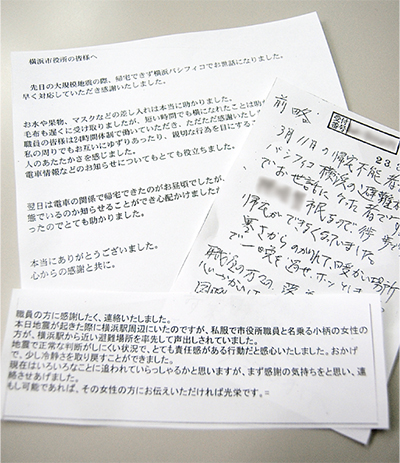 横浜市役所の皆様へ
先日の大規模地震の際、帰宅できず横浜パシフィコでお世話になりました。
早く対応していただき感謝いたしました。
お水や果物、マスクなどの差し入れは本当に助かりました。
毛布も遅くに受け取りましたが、短い時間でも横になれたことは助か
職員の皆様は24時間体制で働いていただき、ただただ感謝いたしま
私の周りでもお互いにゆずりあったり、親切な行為を目にする
人のあたたかさを感じました。
電車情報などのお知らせについてもとても役立ちました。
翌日は電車の関係で帰宅できたのがお昼頃でしたが、
態でいるのか知らせることができ心配かけました
ったのでとても助かりました。
本当にありがとうございました。
心からの感謝と共に。
前略
受付番号
23.3
3月11日の帰宅不能者の
パシフィコ横浜の避難
でお世話になった者です
市民なので 停
帰宅ができなくなっていました
寒さからのがれて、暖かい場所
で一晩を過せ、ホッとし
職員の方々の、
心づかいに
職員の方に感謝したく、連絡いたしました。
本日地震が起きた際に横浜駅周辺にいたのですが、私服で市役所職員と名乗る小柄の女性の
方が、横浜駅から近い避難場所を率先して声出しされていました。
地震で正常な判断がしにくい状況で、とても責任感がある行動だと感心いたしました。おかげ
で、少し冷静さを取り戻すことができました。
現在はいろいろなことに追われていらっしゃるかと思いますが、まず感謝の気持ちをと思い、連
絡させあげました。
もし可能であれば、その女性の方にお伝えいただければ光栄です。=